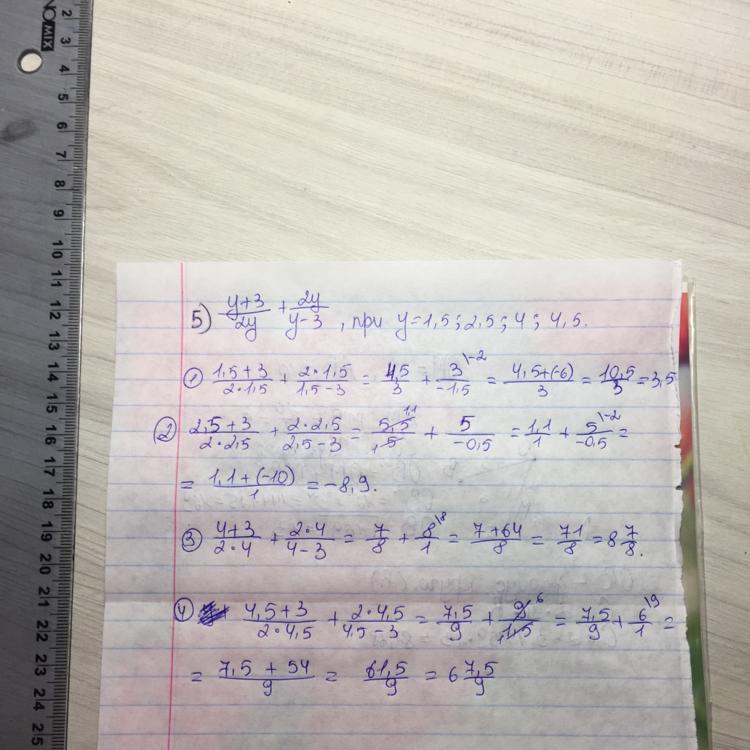 NOMIX
2
3
4
5
6
7
8
9
10
11
12
13
14
15
16
17
18
19
20
21
22
23
24
25
5) (y+3)/(2y) + (2y)/(y-3), при y=1,5; 2,5; 4; 4,5.
① (1,5+3)/(2·1,5) + (2·1,5)/(1,5-3) = 4,5/3 + 3\-2/-1,5 = (4,5+(-6))/3 = 10,5/3 = 3,5
② (2,5+3)/(2·2,5) + (2·2,5)/(2,5-3) = 5,5 1,1/1 5 + 5/-0,5 = 1,1/1 + 5\-2/-0,5 =
= (1,1+(-10))/1 = -8,9.
③ (4+3)/(2·4) + (2·4)/(4-3) = 7/8 + 8\8/1 = (7+64)/8 = 71/8 = 8 7/8.
④ (4,5+3)/(2·4,5) + (2·4,5)/(4,5-3) = 7,5/9 + 9 6/1 1,5 = 7,5/9 + 6\9/1 =
= (7,5+54)/9 = 61,5/9 = 6 7,5/9